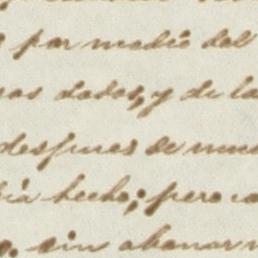 por medio del
dados, y de la
despues de
hecho; pero
sin abonar